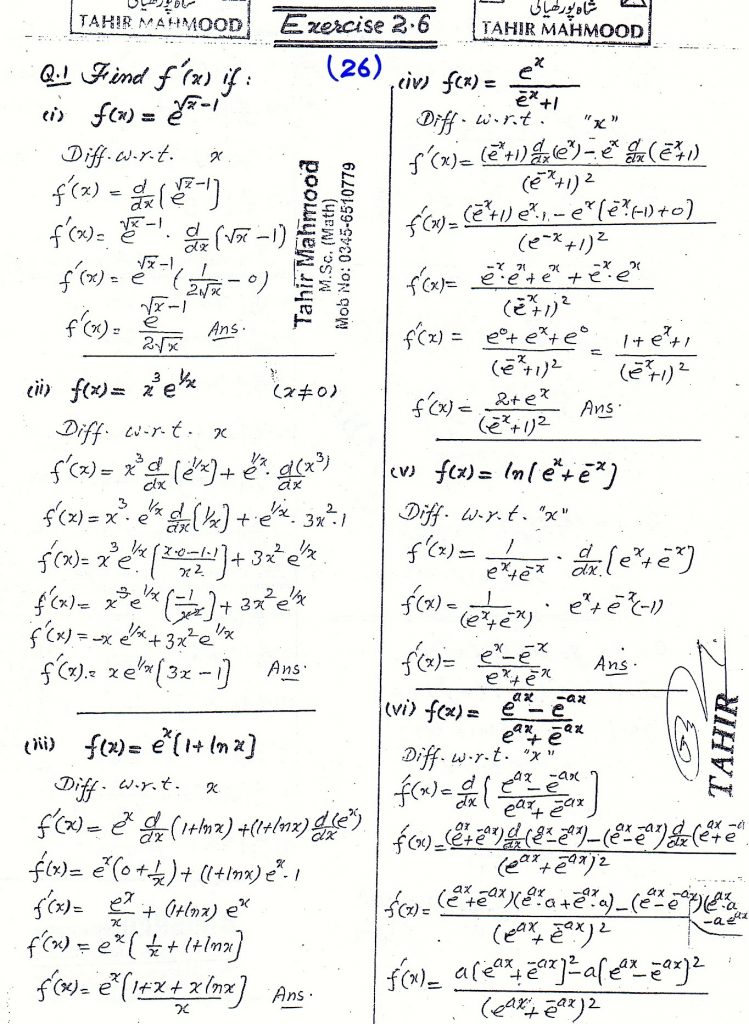 شاہپور بھیاں
TAHIR MAHMOOD
Exercise 2.6
TAHIR MAHMOOD
(26)
Q.1 Find f'(x) if :
(i) f(x) = e^(√x-1)
Diff. w.r.t. x
f'(x) = d/dx [e^(√x-1)]
f'(x) = e^(√x-1) . d/dx (√x - 1)
f'(x) = e^(√x-1) (1/(2√x) - 0)
f'(x) = e^(√x-1)/(2√x) Ans.
Tahir Mahmood
M.Sc. (Math)
Mob No: 0345-6510779
(ii) f(x) = x^3 e^(1/x) (x≠0)
Diff. w.r.t. x
f'(x) = x^3 d/dx [e^(1/x)] + e^(1/x) . d/dx (x^3)
f'(x) = x^3 . e^(1/x) d/dx [1/x] + e^(1/x) . 3x^2 . 1
f'(x) = x^3 e^(1/x) [(x.0-1.1)/x^2] + 3x^2 e^(1/x)
f'(x) = x^3 e^(1/x) [-1/x^2] + 3x^2 e^(1/x)
f'(x) = -x e^(1/x) + 3x^2 e^(1/x)
f'(x) = x e^(1/x) [3x - 1] Ans.
(iii) f(x) = e^x [1 + ln x]
Diff. w.r.t. x
f'(x) = e^x d/dx (1+lnx) + (1+lnx) d/dx (e^x)
f'(x) = e^x (0 + 1/x) + (1+lnx) e^x . 1
f'(x) = e^x/x + (1+lnx) e^x
f'(x) = e^x [1/x + 1+lnx]
f'(x) = e^x [(1+x+x lnx)/x] Ans.
(iv) f(x) = e^x/(e^-x+1)
Diff. w.r.t. "x"
f'(x) = ((e^-x+1) d/dx (e^x) - e^x d/dx (e^-x+1))/(e^-x+1)^2
f'(x) = ((e^-x+1) e^x . 1 - e^x [e^-x . (-1) + 0])/(e^-x+1)^2
f'(x) = (e^-x . e^x + e^x + e^-x . e^x)/(e^-x+1)^2
f'(x) = (e^0 + e^x + e^0)/(e^-x+1)^2 = (1 + e^x + 1)/(e^-x+1)^2
f'(x) = (2 + e^x)/(e^-x+1)^2 Ans.
(v) f(x) = ln [e^x + e^-x]
Diff. w.r.t. "x"
f'(x) = 1/(e^x+e^-x) . d/dx [e^x + e^-x]
f'(x) = 1/(e^x+e^-x) . e^x + e^-x (-1)
f'(x) = (e^x - e^-x)/(e^x + e^-x) Ans.
(vi) f(x) = (e^ax - e^-ax)/(e^ax + e^-ax)
Diff. w.r.t. "x"
f'(x) = d/dx [(e^ax - e^-ax)/(e^ax + e^-ax)]
f'(x) = ((e^ax+e^-ax) d/dx (e^ax-e^-ax) - (e^ax-e^-ax) d/dx (e^ax+e
f'(x) = ((e^ax+e^-ax)(e^ax . a + e^-ax . a) - (e^ax-e^-ax)(e^ax . a - a e^-ax))/(e^ax+e^-ax)^2
f'(x) = (a[e^ax+e^-ax]^2 - a[e^ax-e^-ax]^2)/(e^ax+e^-ax)^2
TAHIR